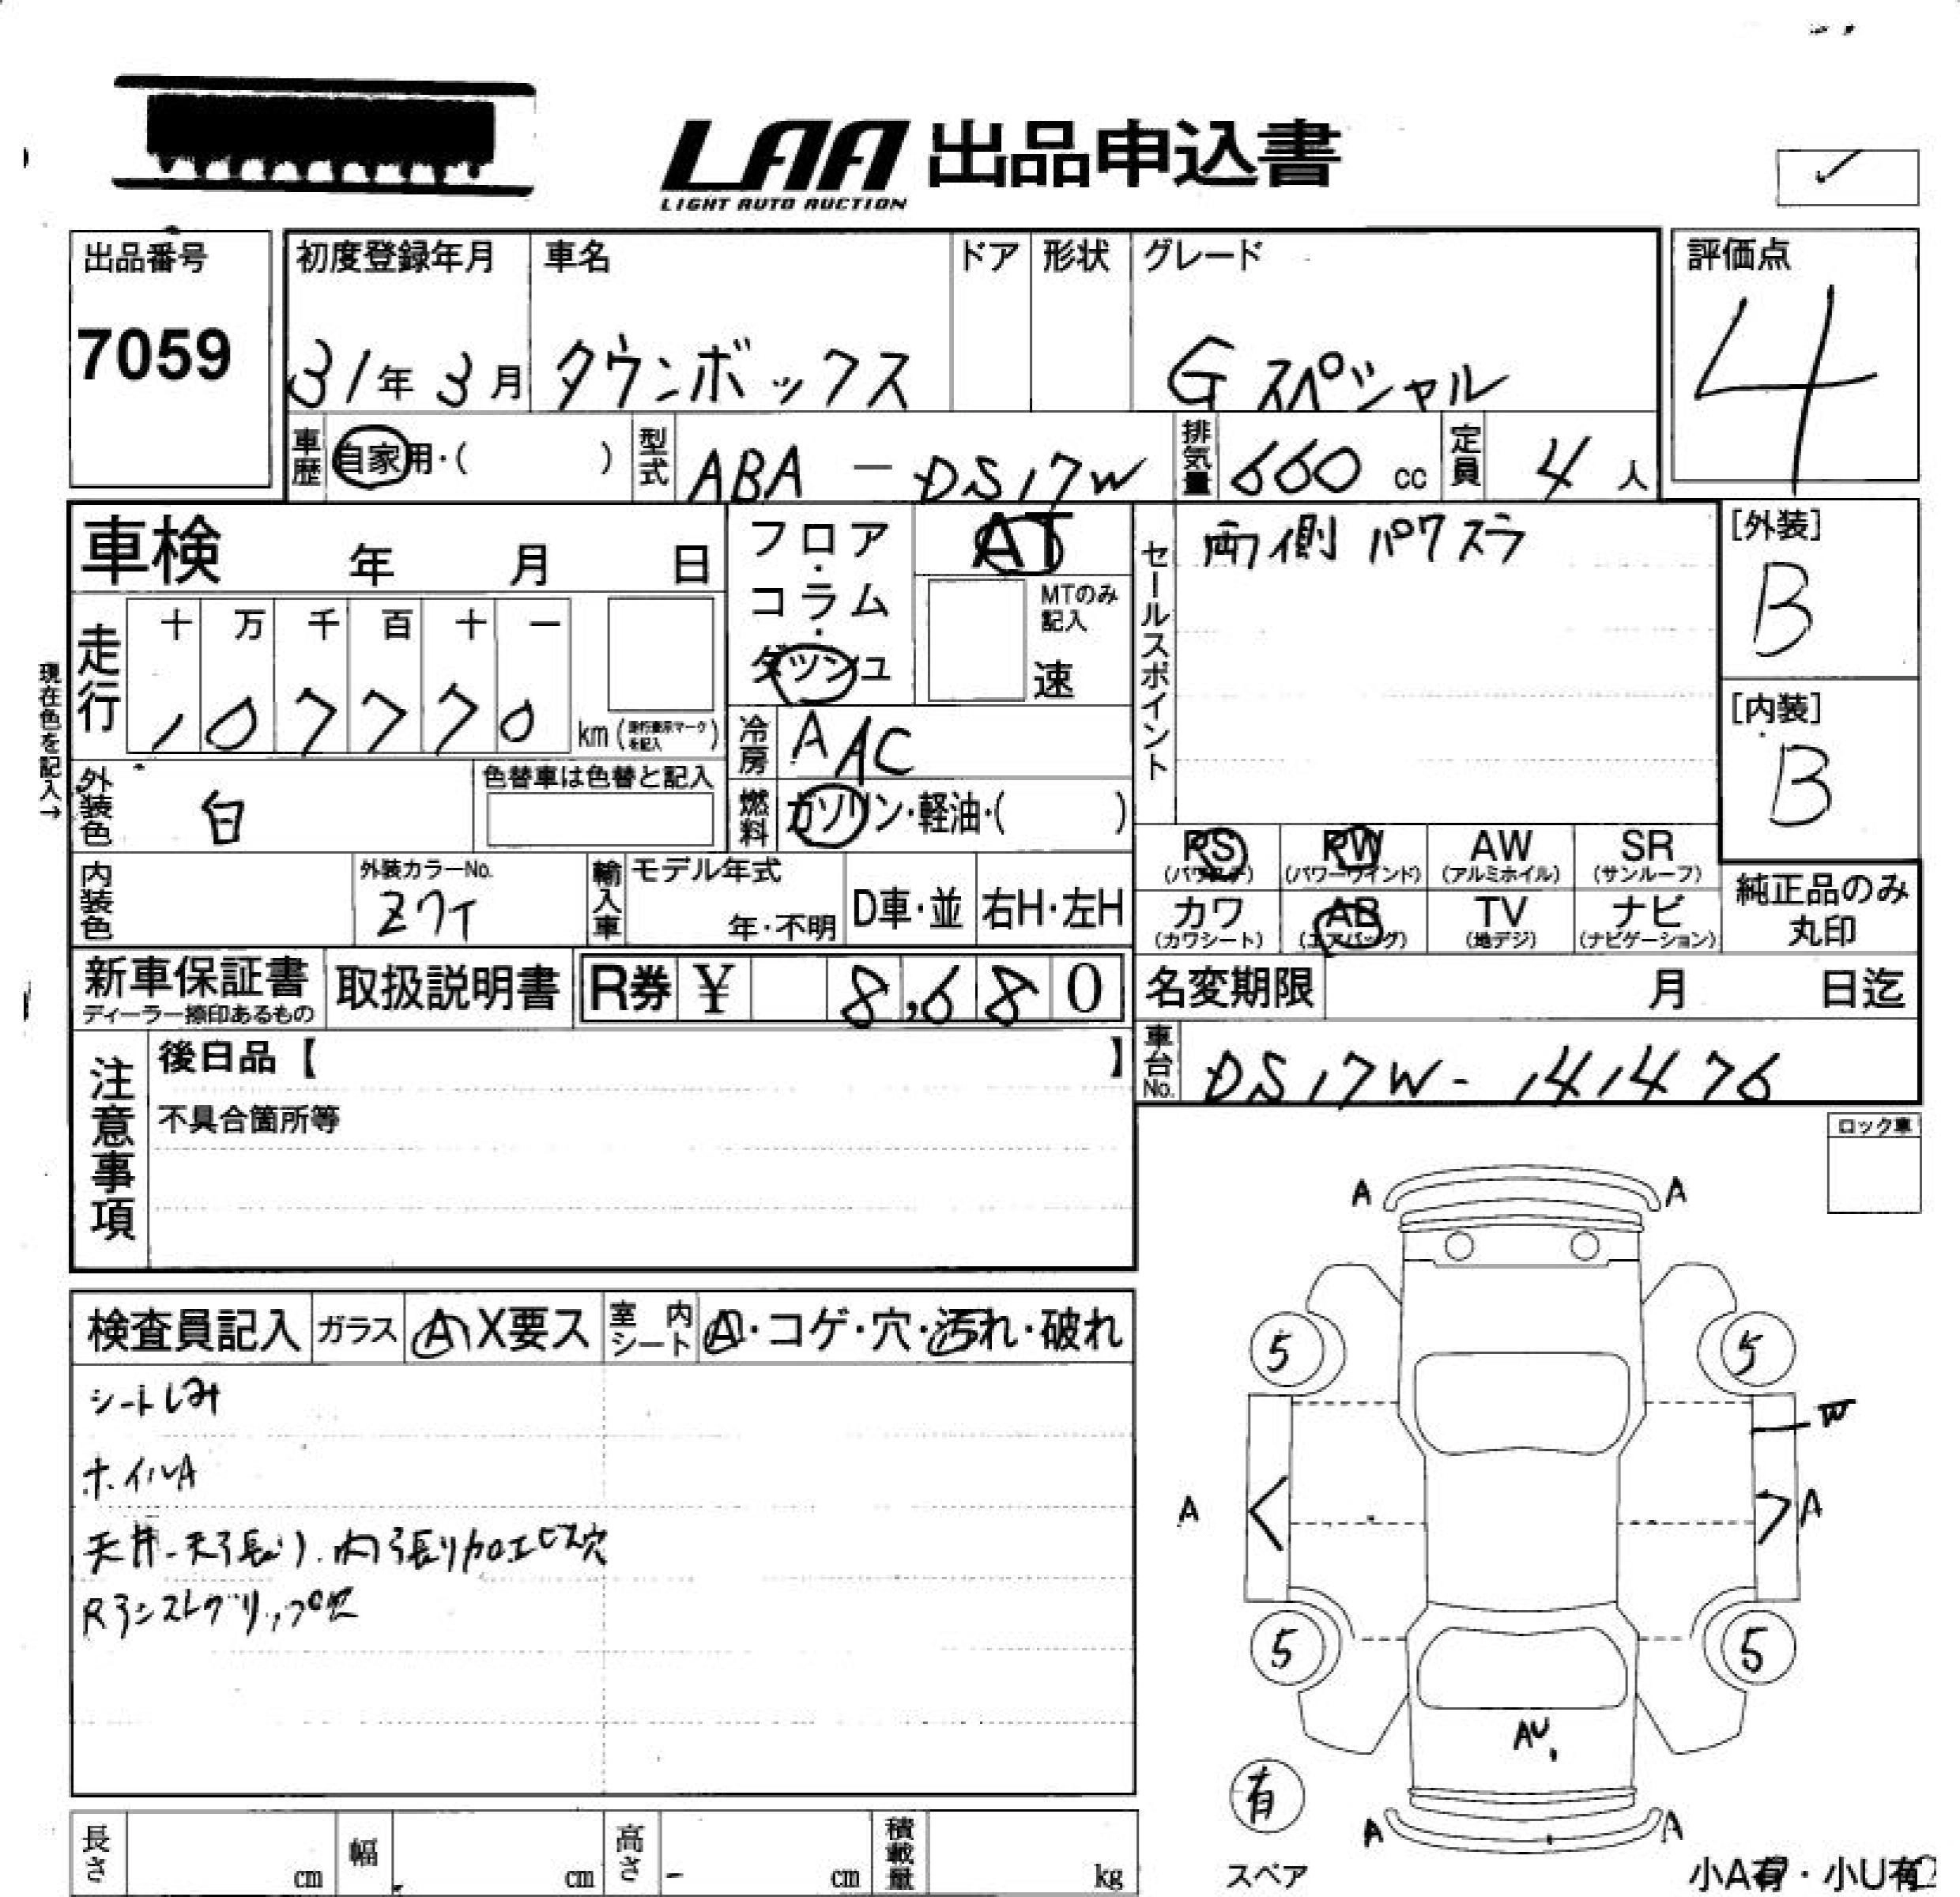 LAA 出品申込書
LIGHT AUTO AUCTION
出品番号
7059
初度登録年月
31年3月
車名
タウンボックス
ドア
形状
グレード
Gスペシャル
評価点
4
車歴
自家用・( )
型式
ABA - DS17W
排気量
660 cc
定員
4 人
車検 年 月 日
フロア・コラム・ダッシュ
AT
MTのみ記入
速
セールスポイント
両側パワスラ
[外装]
B
現在色を記入→
走行
十 万 千 百 十 一
1 0 7 7 7 0
km (走行表示マークを記入)
冷房
AAC
[内装]
B
外装色
白
色替車は色替と記入
燃料
ガソリン・軽油・( )
PS PW AW SR
(パワステ) (パワーウインド) (アルミホイル) (サンルーフ)
カワ AB TV ナビ
(カワシート) (エアバッグ) (地デジ) (ナビゲーション)
純正品のみ
丸印
内装色
外装カラーNo.
Z7T
輸入車
モデル年式
年・不明
D車・並
右H・左H
新車保証書
ディーラー捺印あるもの
取扱説明書
R券 ¥ 8,680
名変期限 月 日迄
注意事項
後日品【 】
不具合箇所等
車台No.
DS17W-141476
ロック車
検査員記入
ガラス
A X要ス
室内シート
A・コゲ・穴・汚れ・破れ
シートしみ
ホイルA
天井-天張り.内張り加工ビス穴
A A
5 5
W
A A
5 5
AU
有
スペア
A A
長さ cm
幅 cm
高さ - cm
積載量 kg
小A有・小U有